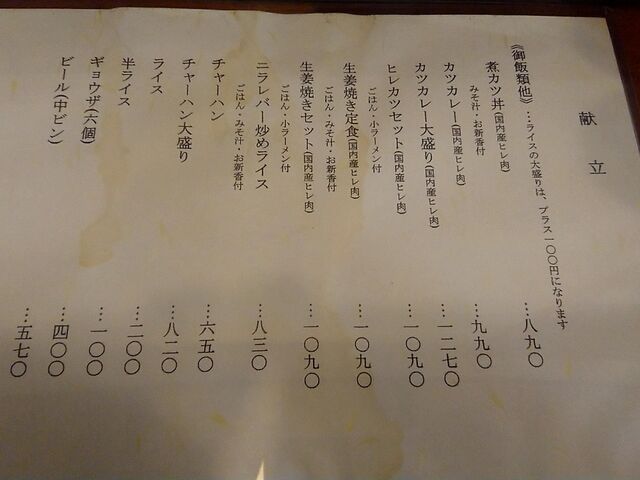 献立
《御飯類他》…ライスの大盛りは、プラス一〇〇円になります
煮カツ丼(国内産ヒレ肉)…八九〇
みそ汁・お新香付
カツカレー(国内産ヒレ肉)…九九〇
カツカレー大盛り(国内産ヒレ肉)…一二七〇
ヒレカツセット(国内産ヒレ肉)…一〇九〇
ごはん・小ラーメン付
生姜焼き定食(国内産ヒレ肉)…一〇九〇
ごはん・みそ汁・お新香付
生姜焼きセット(国内産ヒレ肉)…一〇九〇
ごはん・小ラーメン付
ニラレバー炒めライス…八三〇
ごはん・みそ汁・お新香付
チャーハン…六五〇
チャーハン大盛り…八二〇
ライス…二〇〇
半ライス…一〇〇
ギョウザ(六個)…四〇〇
ビール(中ビン)…五七〇